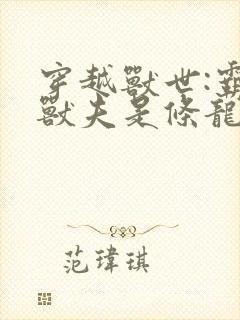 穿越獸世:霸
獸夫是條龍
范瑋琪